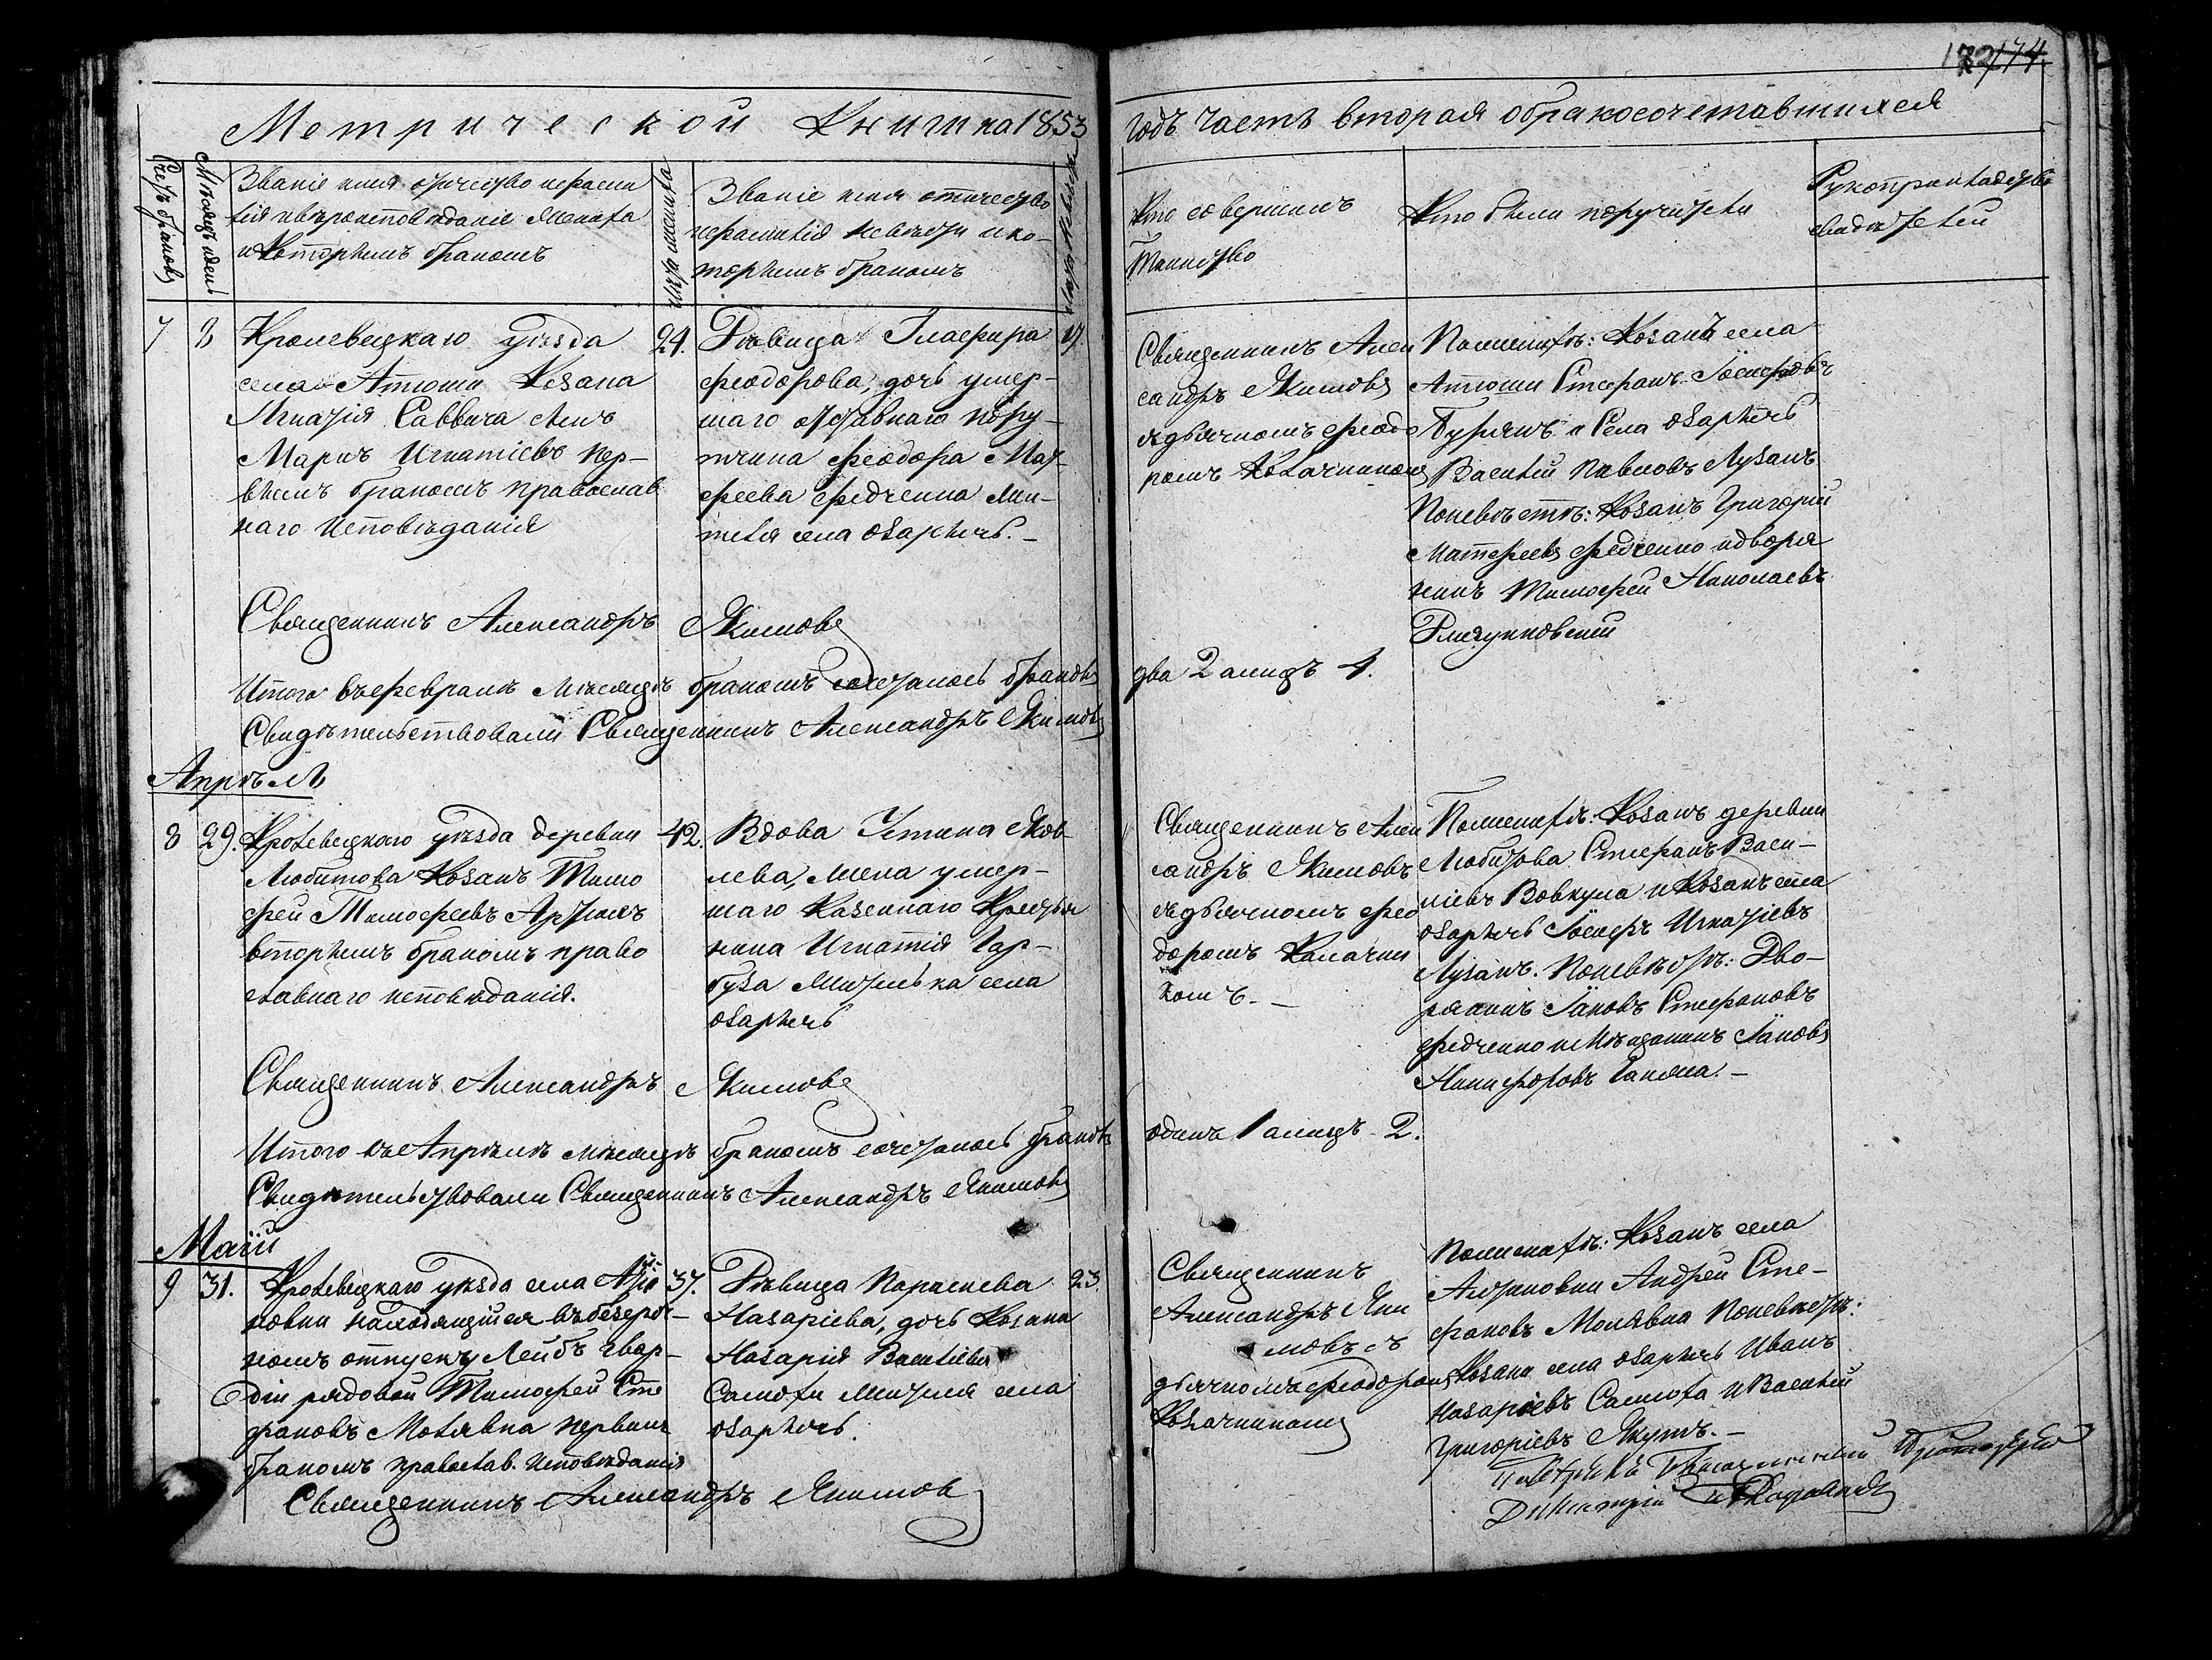 172 174
Метрической Книги на 1853
годъ Часть вторая о бракосочетавшихся
Счетъ браковъ
Мѣсяцъ и день
Званіе имя отчество и фамилія
и вѣроисповѣданіе жениха
и Которымъ бракомъ
Лѣта жениха
Званіе имя отчество
и фамилія невѣсты и ко-
торымъ бракомъ
Лѣта невѣсты
Кто совершилъ
Таинство
Кто были поручители
Рукоприкладство
свидѣтелей
7
8
Кролевецкаго уѣзда
села Атюши Козака
Игнатія Саввича сынъ
Маркъ Игнатіевъ пер-
вымъ бракомъ православ
наго исповѣданія
24.
Дѣвица Глафира
Феодорова, дочь умер-
шаго отставнаго пору-
тчика Феодора Мат-
феева Федченка жи-
теля села Озаричъ. –
17
Священникъ Алек
сандръ Якимовъ
съ дьячкомъ Феодо
ромъ Колачникомъ
По женихѣ: Козакъ села
Атюши Стефанъ Іосифовъ
и Села Озаричъ
Василій Павловъ Лузанъ
По невѣстѣ: Козакъ Григорій
Матфеевъ Федченко и дворя
нинъ Тимофей Николаевъ
Священникъ Александръ Якимовъ
Итого въ февралѣ мѣсяцѣ бракомъ сочеталось браковъ
два 2 а лицъ 4.
Свидѣтельствовали Священникъ Александръ Якимовъ
Апрѣль
8
29.
Кролевецкаго уѣзда деревни
Любитова Козакъ Тимо
фей Тимофеевъ
вторымъ бракомъ право
славнаго исповѣданія.
42.
Вдова Устина Яков
лева, жена умер-
шаго Казеннаго Крестья
нина Игнатія Гар-
буза жителька села
Озаричъ
Священникъ Алек
сандръ Якимовъ
съ дьячкомъ Фео
доромъ Калачни
комъ. –
По женихѣ: Козакъ деревни
Любитова Стефанъ Васи-
ліевъ Вовкула и Козакъ села
Озаричъ Іосифъ Игнатіевъ
Лузанъ. По невѣстѣ: Дво-
рянинъ Іаковъ Стефановъ
Федченко и Мѣщанинъ Іаковъ
Никифоровъ –
Священникъ Александръ Якимовъ
Итого въ Апрѣлѣ мѣсяцѣ бракомъ сочеталось браковъ
одинъ 1 а лицъ 2.
Свидѣтельствовали Священникъ Александръ Якимовъ
Маій
9
31.
Кролевецкаго уѣзда села
новки находящійся въ безсроч-
номъ отпуску Лейбъ гвар-
діи рядовой Тимофей Сте
фановъ Молявка первымъ
бракомъ православ. исповѣданія
37.
Дѣвица Параскева
Назаріева, дочь Козака
Назарія Василіева
Самохи жителя села
Озаричъ.
23
Священникъ
Александръ Яки
мовъ съ
дьячкомъ Феодоромъ
Колачникомъ
По женихѣ: Козакъ села
Андрей Сте-
фановъ Молявка По невѣстѣ:
Козаки села Озаричъ Иванъ
Назаріевъ Самоха и Василій
Григоріевъ Якутъ. –
Священникъ Александръ Якимовъ
Димитрій